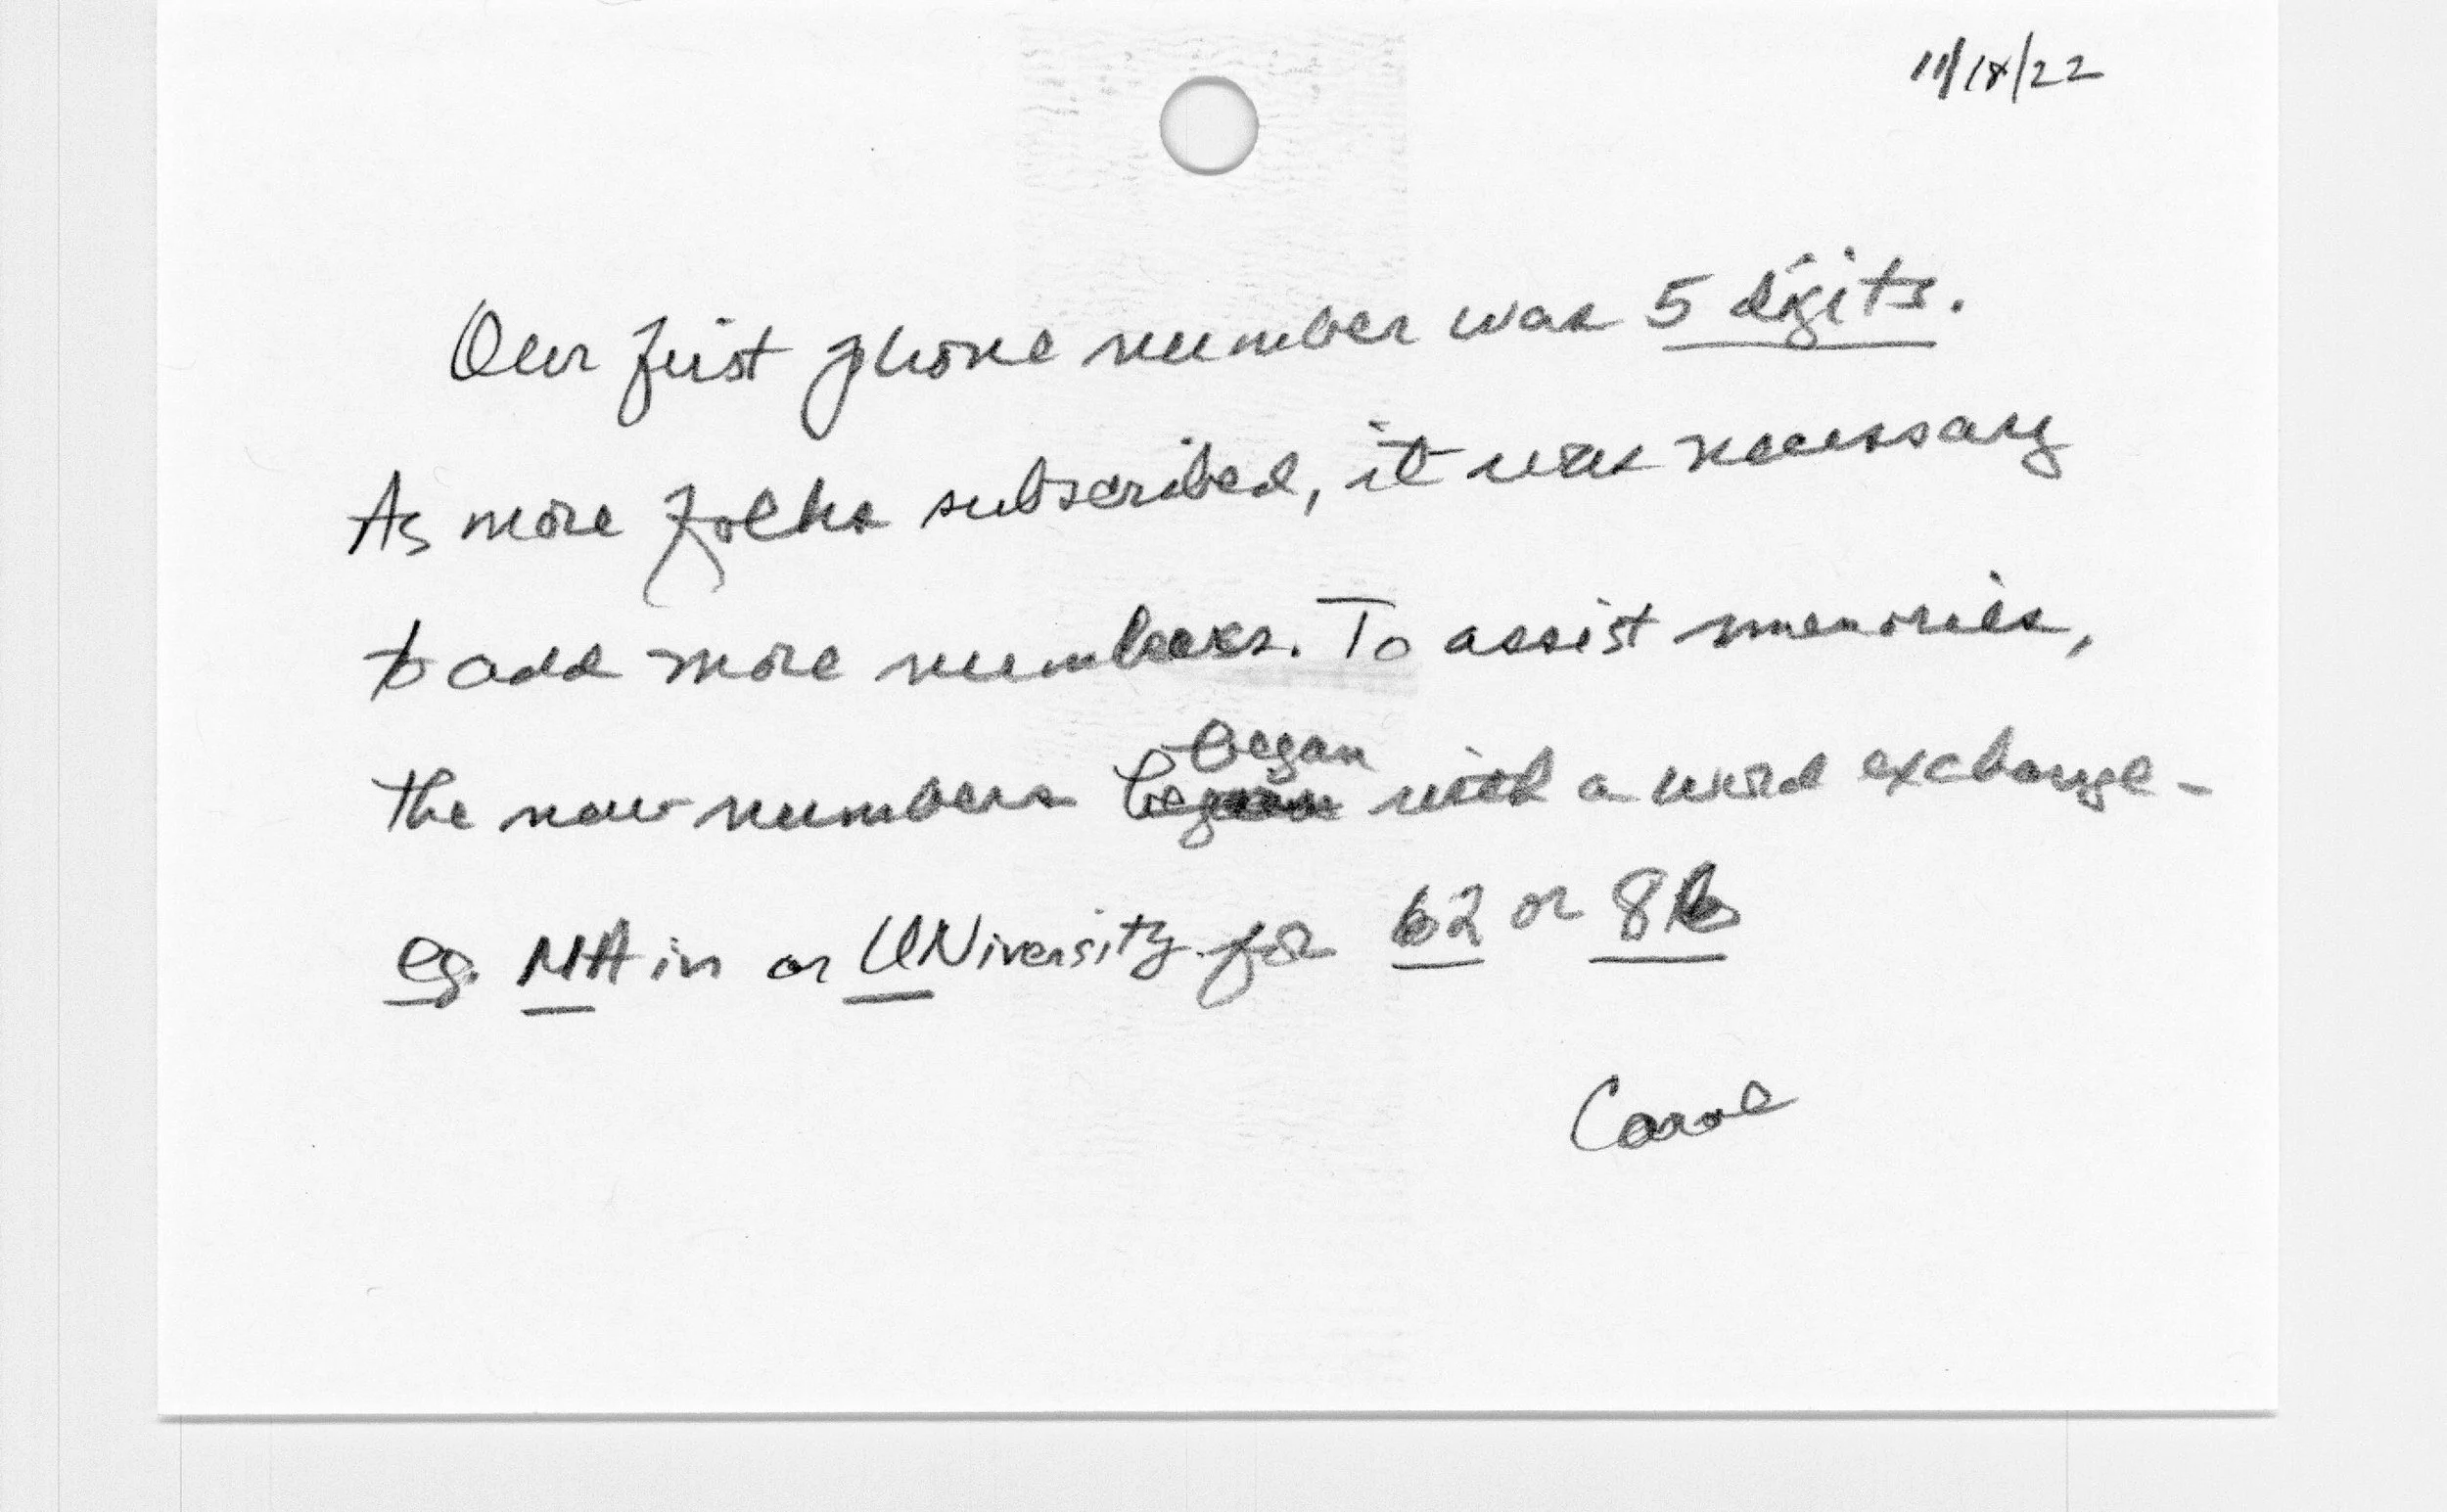 11/18/22
Our first phone number was 5 digits.
As more folks subscribed, it was necessary
to add more numbers. To assist memories,
began
the new numbers with a word exchange -
eg. MAin or UNiversity for 62 or 86
Carol